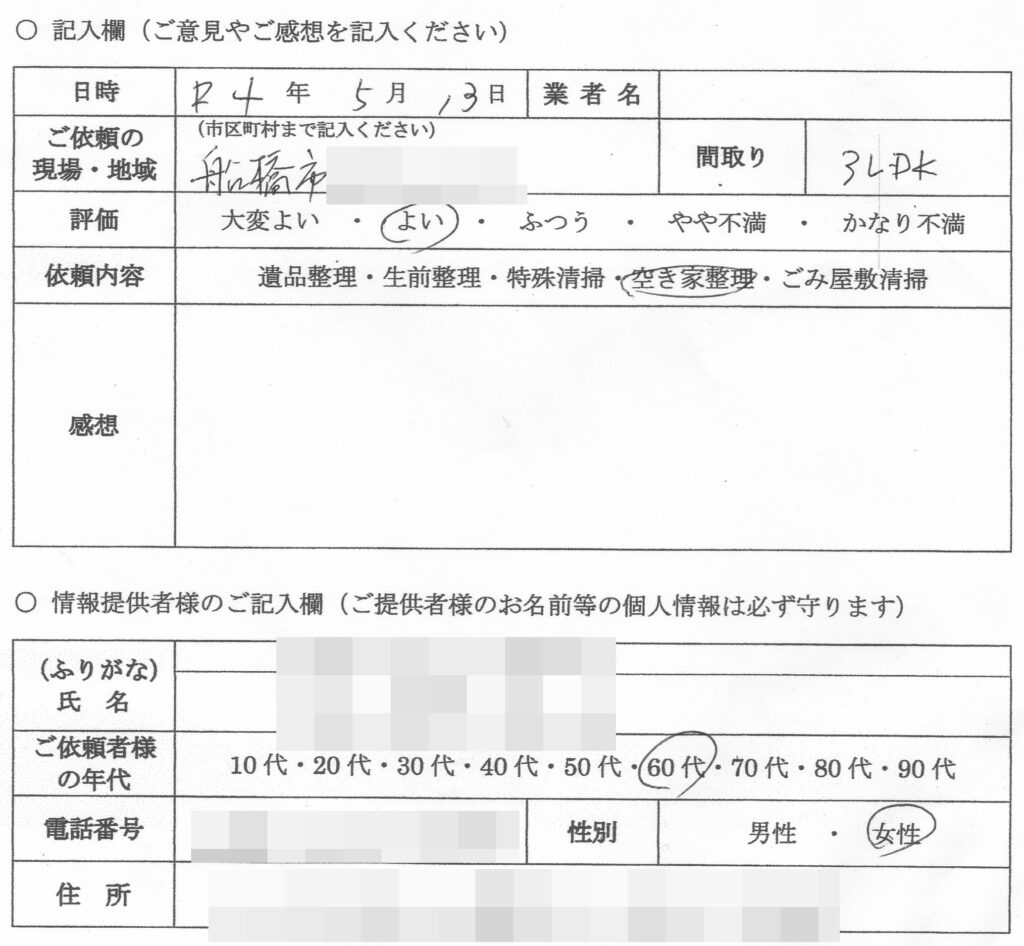 ○ 記入欄（ご意見やご感想を記入ください）
日時 R 4 年 5 月 13 日 業者名
ご依頼の現場・地域 （市区町村まで記入ください） 船橋市 間取り 3LDK
評価 大変よい ・ よい ・ ふつう ・ やや不満 ・ かなり不満
依頼内容 遺品整理・生前整理・特殊清掃・空き家整理・ごみ屋敷清掃
感想
○ 情報提供者様のご記入欄（ご提供者様のお名前等の個人情報は必ず守ります）
（ふりがな）
氏 名
ご依頼者様の年代 10代・20代・30代・40代・50代・60代・70代・80代・90代
電話番号 性別 男性 ・ 女性
住 所